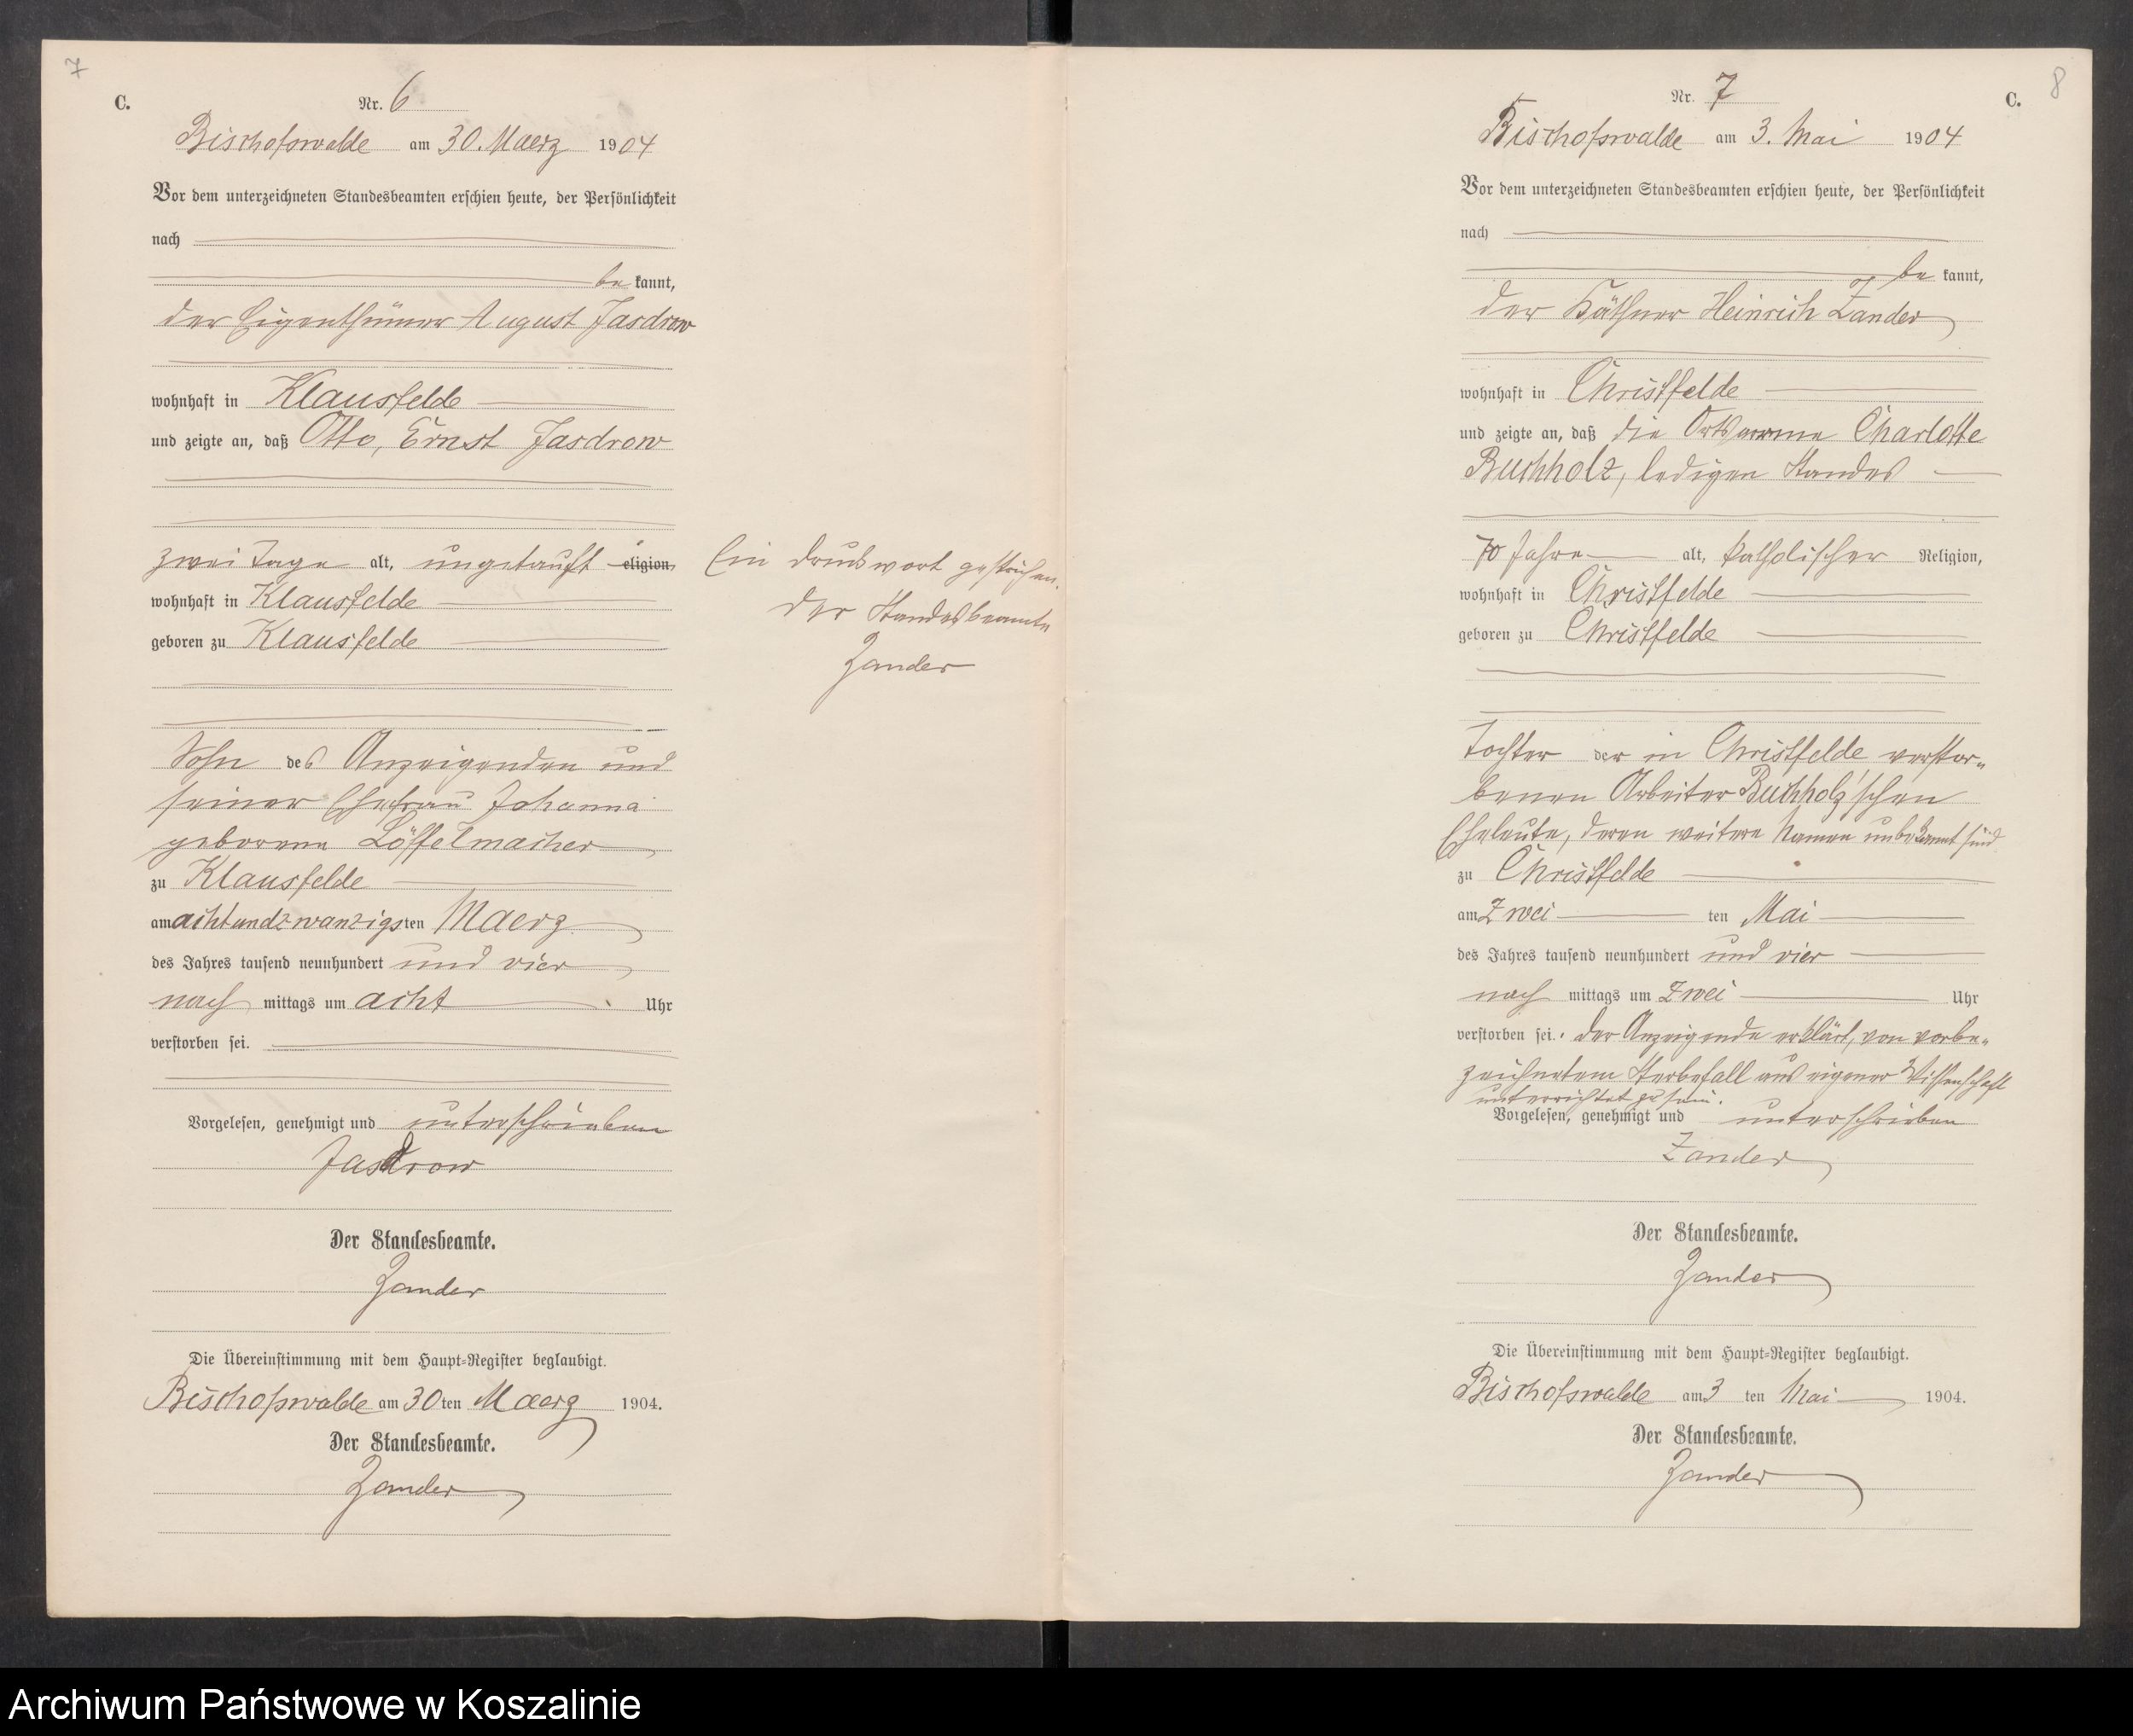 7
C.
Nr. 6
Bischofswalde am 30. Maerz 1904
Vor dem unterzeichneten Standesbeamten erschien heute, der Persönlichkeit
nach
be kannt,
der Eigenthümer August Jasdrow
wohnhaft in Klausfelde
und zeigte an, daß Otto, Ernst Jasdrow
zwei Tage alt, ungetauft eligion,
wohnhaft in Klausfelde
geboren zu Klausfelde
Sohn des Anzeigenden und
seiner Ehefrau Johanna
geborene Löffelmacher
zu Klausfelde
am achtundzwanzigsten Maerz
des Jahres tausend neunhundert und vier
nach mittags um acht Uhr
verstorben sei.
Vorgelesen, genehmigt und unterschrieben
Jasdrow
Der Standesbeamte.
Zander
Die Übereinstimmung mit dem Haupt-Register beglaubigt.
Bischofswalde am 30 ten Maerz 1904.
Der Standesbeamte.
Zander
Ein Druckwort gestrichen.
Der Standesbeamte
Zander
8
Nr. 7
C.
Bischofswalde am 3. Mai 1904
Vor dem unterzeichneten Standesbeamten erschien heute, der Persönlichkeit
nach
be kannt,
der Käthner Heinrich Zander
wohnhaft in Christfelde
und zeigte an, daß die Ortsarme Charlotte
Buchholz, ledigen Standes
70 Jahre alt, katholischer Religion,
wohnhaft in Christfelde
geboren zu Christfelde
Tochter der in Christfelde verstor-
benen Arbeiter Buchholz'schen
Eheleute, deren weitere Namen unbekannt sind
zu Christfelde
am zwei ten Mai
des Jahres tausend neunhundert und vier
nach mittags um zwei Uhr
verstorben sei. Der Anzeigende erklärt, von vorbe-
zeichnetem Sterbefall aus eigener Wissenschaft
unterrichtet zu sein.
Vorgelesen, genehmigt und unterschrieben
Zander
Der Standesbeamte.
Zander
Die Übereinstimmung mit dem Haupt-Register beglaubigt.
Bischofswalde am 3 ten Mai 1904.
Der Standesbeamte.
Zander
Archiwum Państwowe w Koszalinie